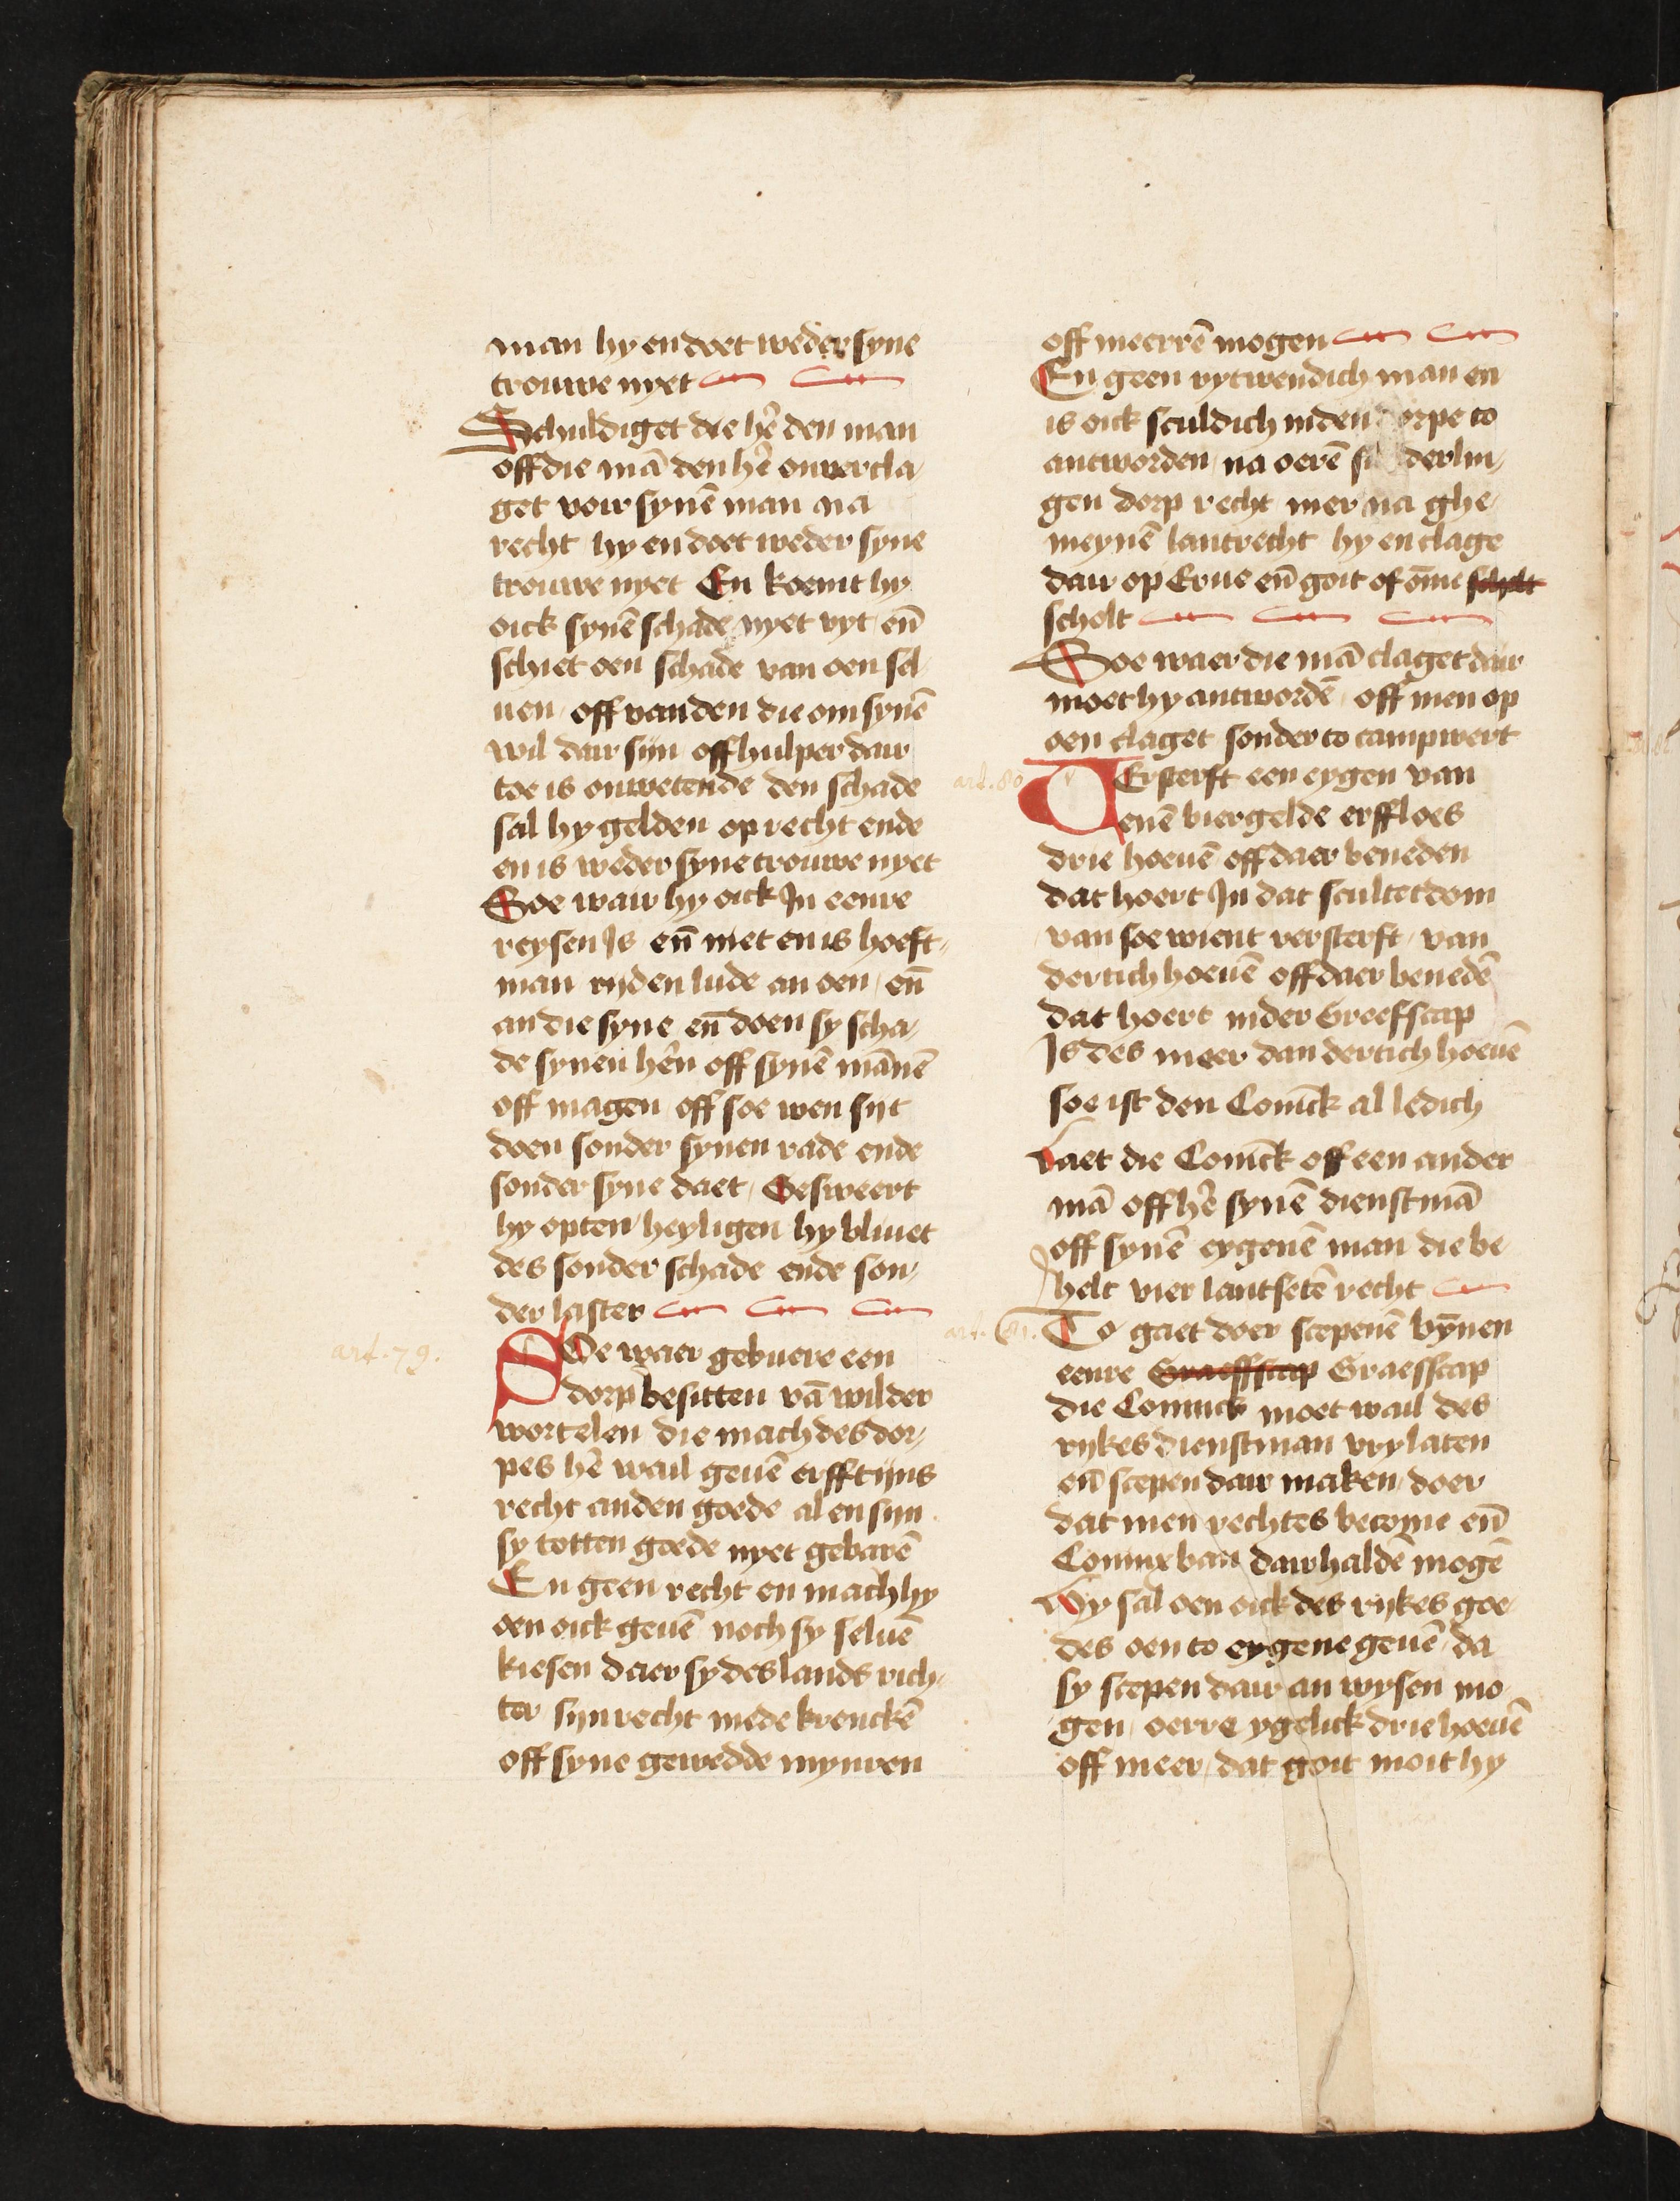 man hy en doet weder syne
trouwe nyet
Schuldiget die hē den man
off die mā den hē onvercla
get voir synē man na
recht hy en doet weder syne
trouwe nyet En koemt hy
oick synē schade nyet vyt en̄
schiet oen schade van oen sel
uen off vanden die om synē
wil dair sijn off hulper dair
toe is onwetende den schade
sal hy gelden op recht ende
en is weder syne trouwe nyet
Soe wair hy oick Jn eenre
reysen Js en̄ niet en is hoeft
man rijden lude an oen en̄
an die syne en̄ doen sy scha
de synen hēn off synē mānē
off magen off soe wen sijt
doen sonder synen rade ende
sonder syne daet Desweert
hy opten heyligen hy bliuet
des sonder schade ende son
der laster
art. 79.
SOe waer gebuere een
dorp besitten vā wilder
wortelen die mach des dor
pes hē wail geuē erfftijns
recht anden goede al en sijn
sy totten goede nyet gebarē
En geen recht en mach hy
oen oick geuē noch sy seluē
kiesen daer sy des lands rich
ter sijn recht mede krenckē
off syne gewedde mynren
off meerrē mogen
En geen vytwendich man en
is oick sculdich inden dorpe to
antworden na oerē derlin
gen dorp recht mer na ghe
meynē lantrecht hy en clage
dair op Erue en̄ goit of om̄e scholt
scholt
Soe waer die mā claget dair
moet hy antwordē off men op
oen claget sonder to campwert
art. 80
VErsterft een eygen van
enē biergelde erffloes
drie hoeuē off daer beneden
dat hoert Jn dat scultetdom
van soe wient versterft van
dertich hoeuē off daer benedē
dat hoert inder Greefscap
Js des meer dan dertich hoeuē
soe ist den Coninck al ledich
Laet die Coninck off een ander
mā off hē synē dienstmā
off synē eygenē man die be
helt vier lantsetē recht
art. 81.
To gaet doer scepenē bȳnen
eenre Graeffscap Graefscap
die Coninck moet wail des
rijkes dienstman vry laten
en̄ scepen dair maken doer
dat men rechtes become en̄
Coninxban dair haldē mogē
Hy sal oen oick des rijkes goe
des oen to eygene geuē da
sy scepen dair an wysen mo
gen oerre ygelick drie hoeuē
off meer dat goit moit hy